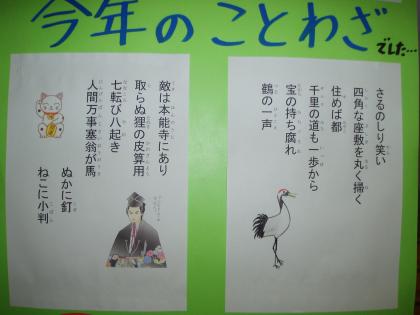 今年のことわざ
でした…
さるのしり笑い
四角な座敷を丸く掃く
住めば都
千里の道も一歩から
宝の持ち腐れ
鶴の一声
敵は本能寺にあり
取らぬ狸の皮算用
七転び八起き
人間万事塞翁が馬
ぬかに釘
ねこに小判